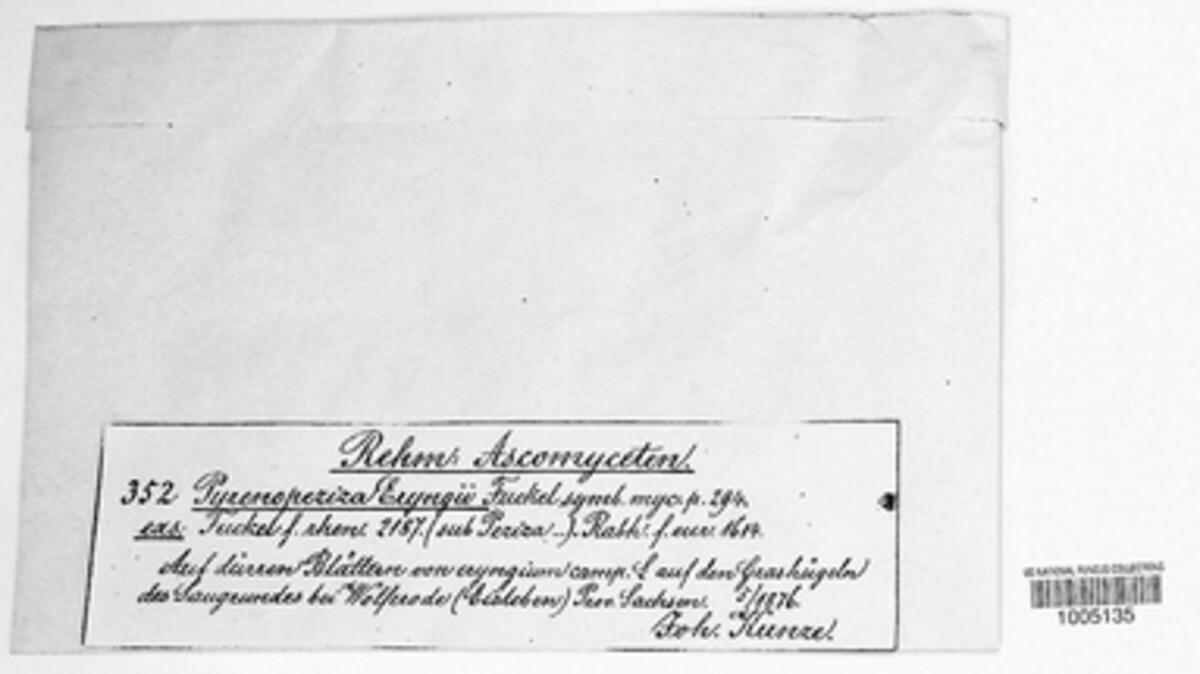 Rehm: Ascomyceten.
352 Pyrenopeziza Eryngii Fuckel symb. myc. p. 294.
exs. Fuckel f. rhen. 2187. (sub Peziza ...). Rabh. f. eur. 1614.
Auf dürren Blättern von eryngium camp. L auf den Grashügeln
des Saugrundes bei Wolferode (Eisleben) Prov. Sachsen. /1876.
Joh. Kunze.
US NATIONAL FUNGUS COLLECTIONS
1005135